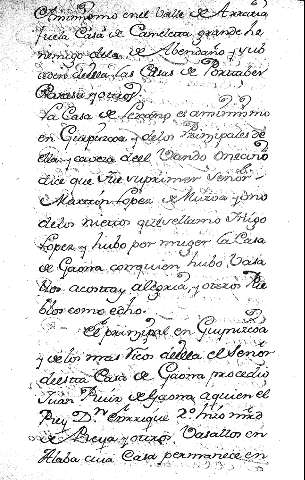 Asimismo en el Valle de Arratia
la Casa de grande he
nemigo dela de Abendaño, y
della, las Casas de
y otros
La Casa de Lezcano es asimismo
en Guipuzcoa y delos Principales de
ella caveza deel Vando oñecino
dice que fue su primer Señor
Martin Lopez de Murua y uno
delos nietos que se llamo Iñigo
Lopez, y hubo por muger la Casa
de Gaona con quien hubo Vasa
llos acosta, y alegria, y otros Pue
blos como echo.
El principal en Guipuzcoa
y delos mas ricos della el Señor
de esta Casa de Gaona procedio
Juan Ruiz de Gaona a quien el
Rey Dn. Enrique 2º. hizo mrd
de y otros Vasallos en
Alaba cuia Casa permanece en